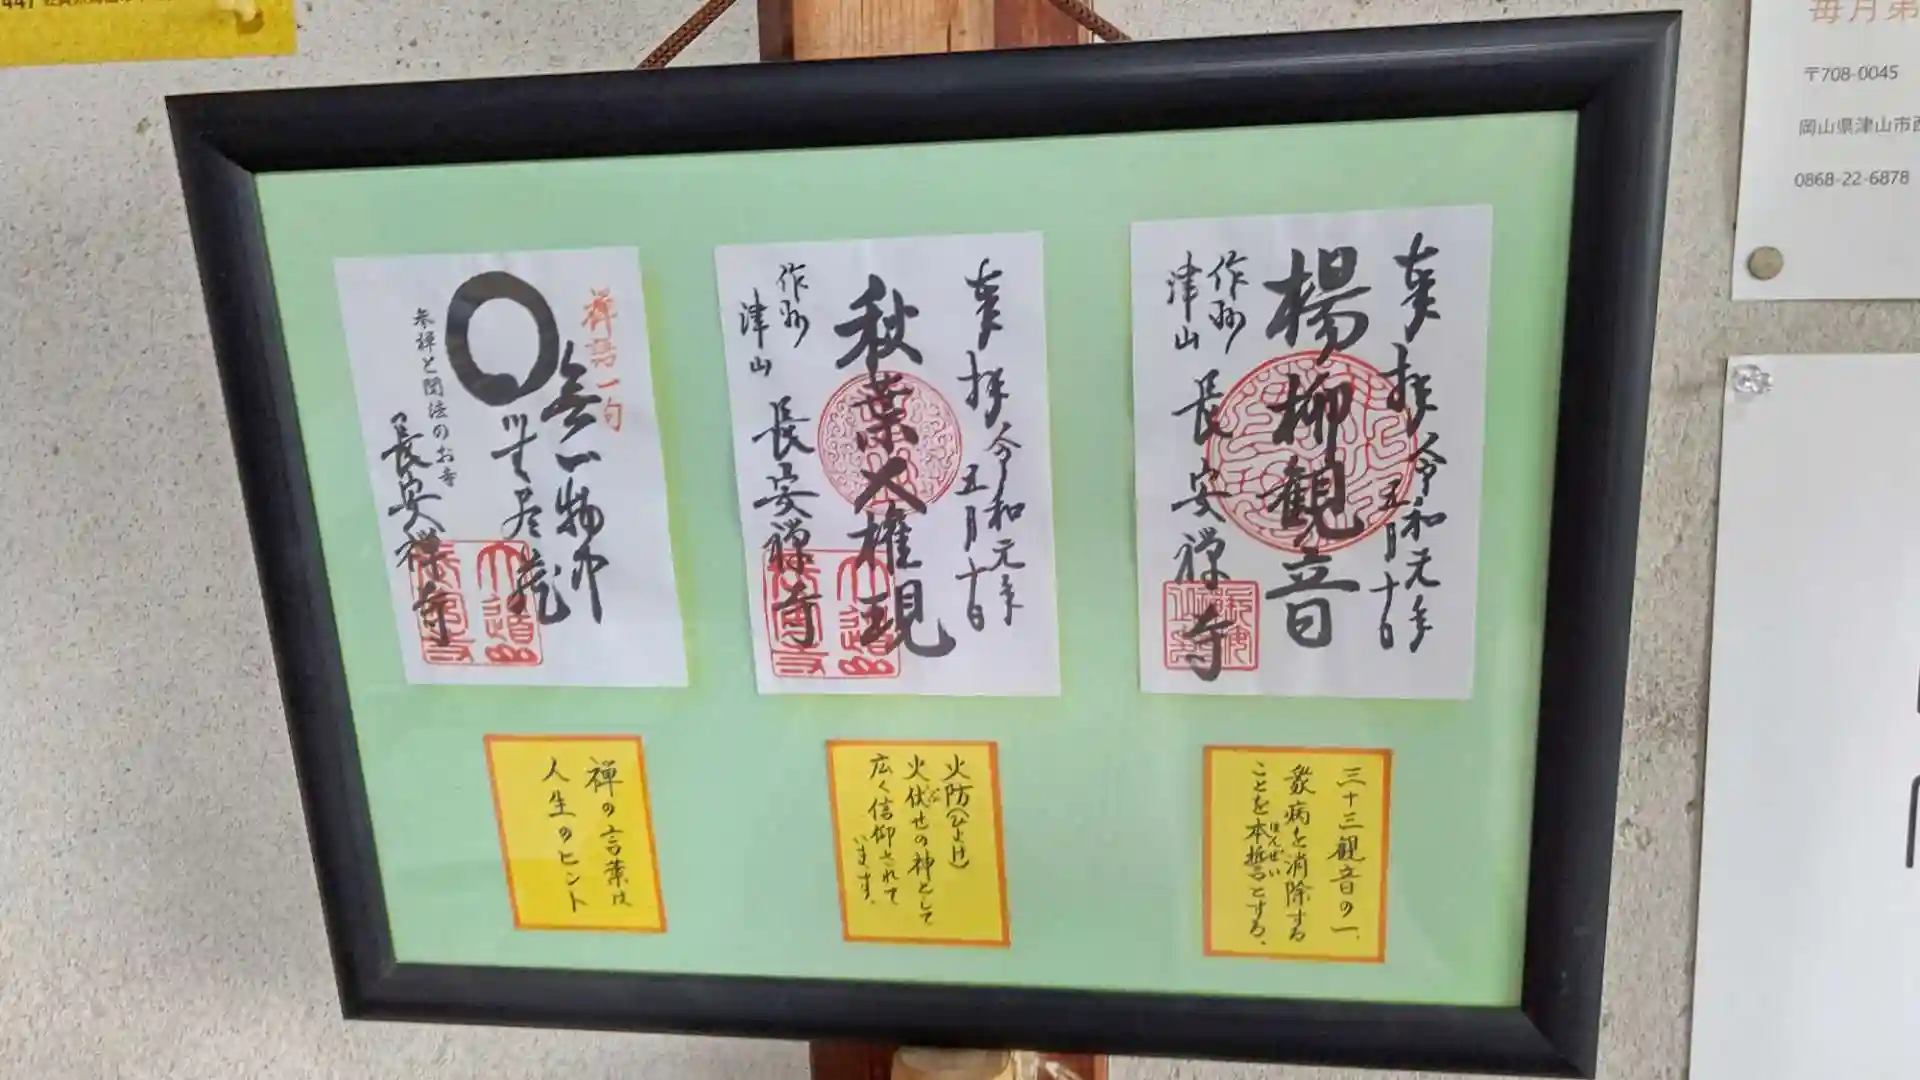 奉拝
令和元年
五月十日
楊柳観音
作州
津山
長安禅寺
奉拝
令和元年
五月十日
秋葉大権現
作州
津山
長安禅寺
禅語一句
無一物中
無尽蔵
参禅と聞法のお寺
長安禅寺
三十三観音の一、
衆病を消除する
ことを本誓とする。
ほんぜい
火防(ひよけ)
火伏せの神として
ぶ
広く信仰されて
います。
禅の言葉は
人生のヒント
毎月第
〒708-0045
岡山県津山市西
0868-22-6878